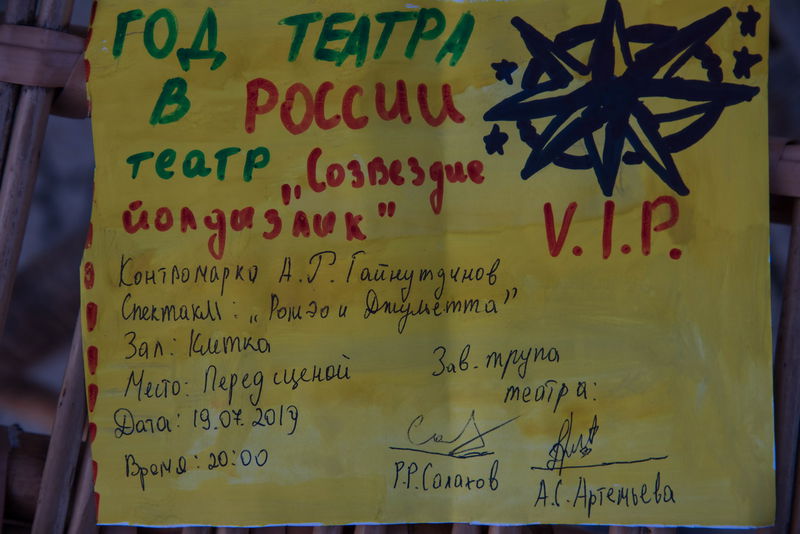 ГОД ТЕАТРА
В РОССИИ
театр „Созвездие
йолдизлик"
V.I.P.
Контромарка А.Г. Гайнутдинов
Спектакль: „Ромэо и Джульетта"
Зал: Клетка
Место: Перед сценой
Зав. трупа
театра:
Дата: 19.07.2019
Время: 20:00
Р.Р. Салахов
А.С. Артемьева